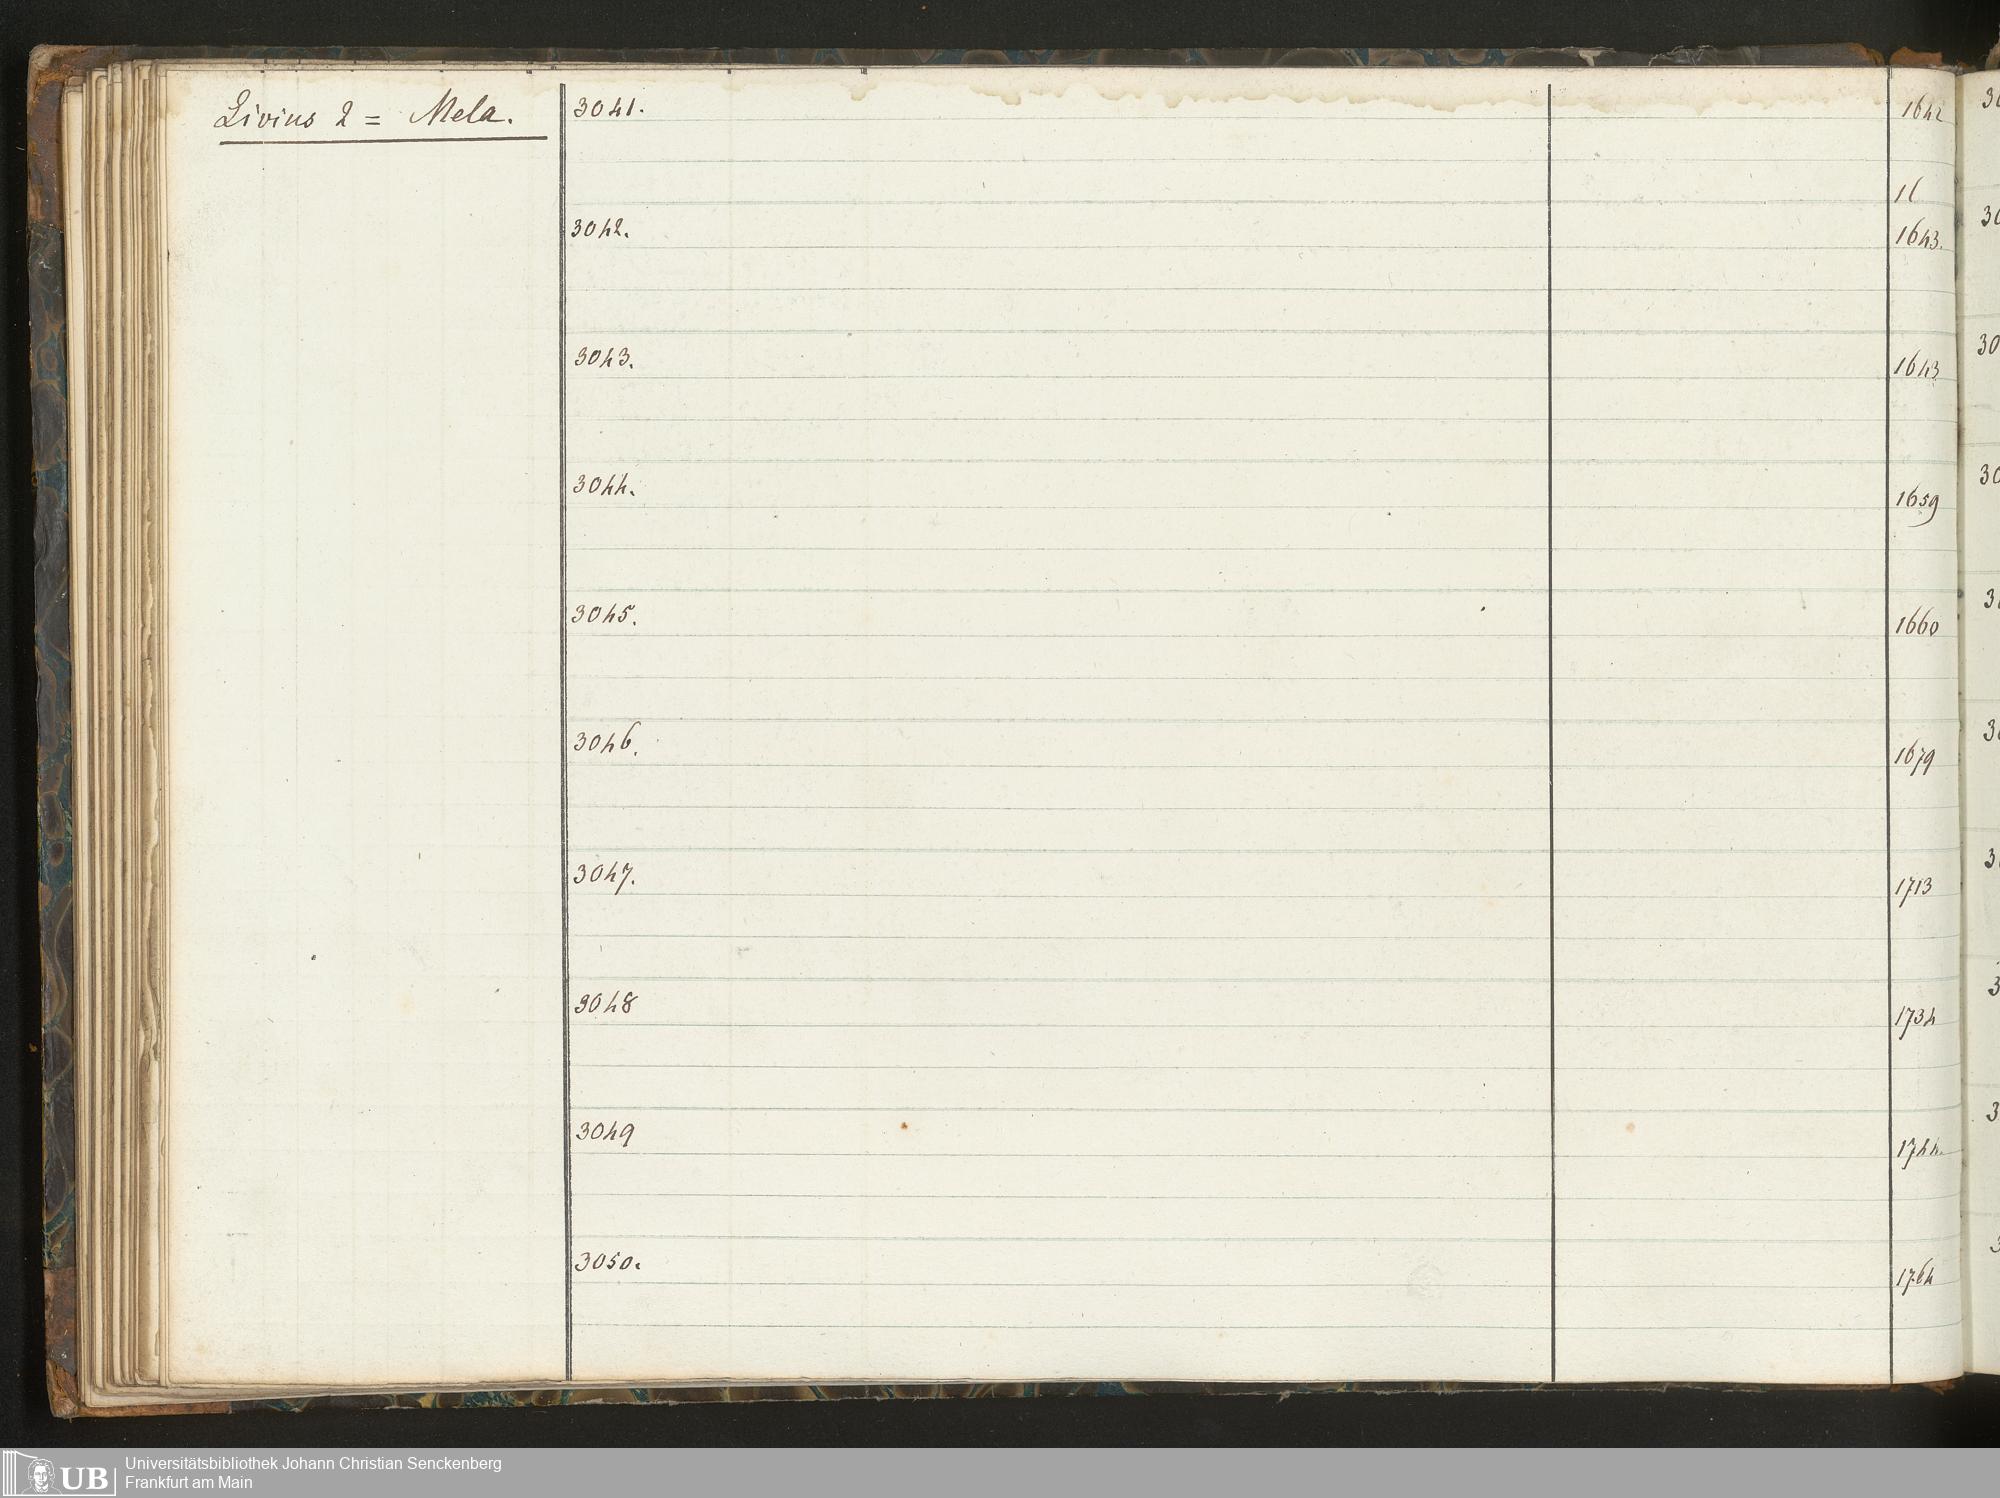 Livius 2 = Mela.
3041. 1642
16
3042. 1643.
3043. 1643
3044. 1659
3045. 1660
3046. 1679
3047. 1713
3048 1734
3049 1744.
3050. 1764
UB
Universitätsbibliothek Johann Christian Senckenberg
Frankfurt am Main